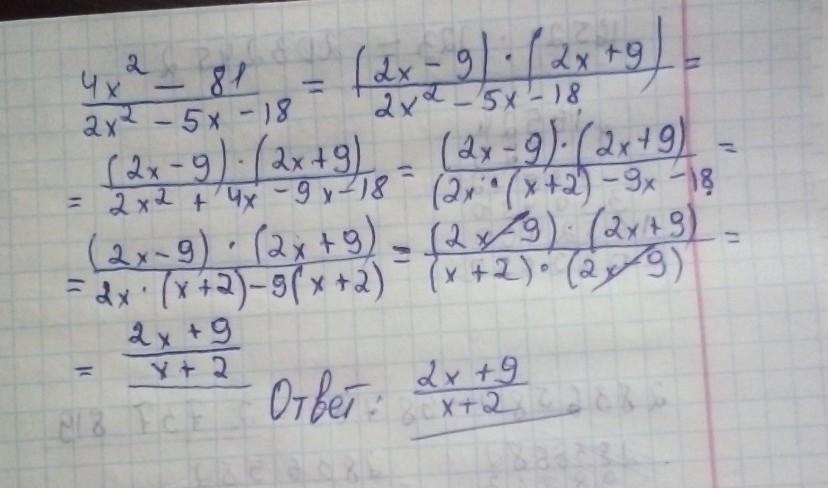 (4x² - 81)/(2x² - 5x - 18) = ((2x - 9) · (2x + 9))/(2x² - 5x - 18) =
= ((2x - 9) · (2x + 9))/(2x² + 4x - 9x - 18) = ((2x - 9) · (2x + 9))/((2x · (x + 2) - 9x - 18 =
= ((2x - 9) · (2x + 9))/(2x · (x + 2) - 9(x + 2)) = ((2x - 9) · (2x + 9))/((x + 2) · (2x - 9)) =
= (2x + 9)/(x + 2) Ответ: (2x + 9)/(x + 2)